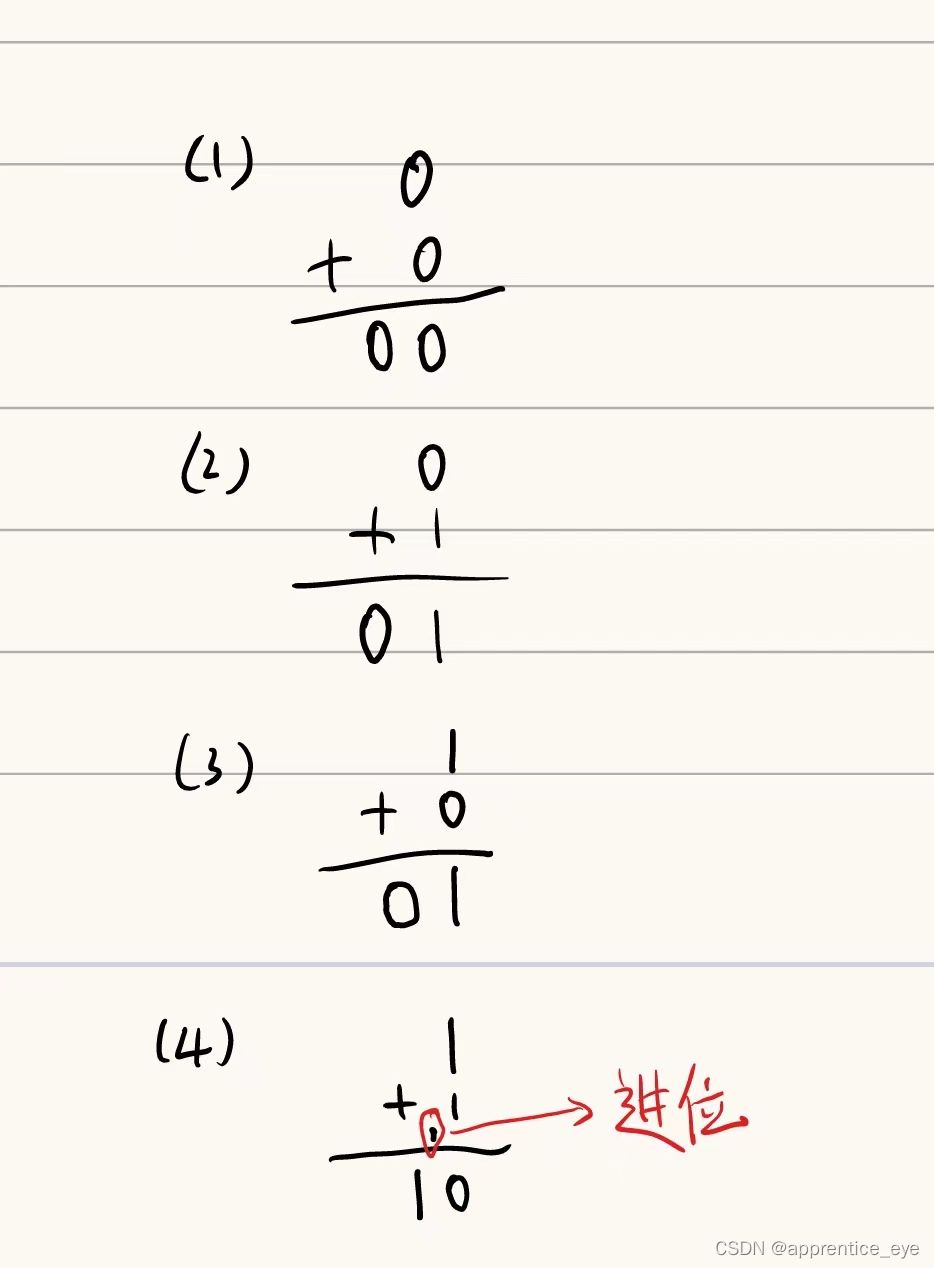 (1) 0
+ 0
00
(2) 0
+ 1
01
(3) 1
+ 0
01
(4) 1
+ 1
· → 进位
10
CSDN @apprentice_eye